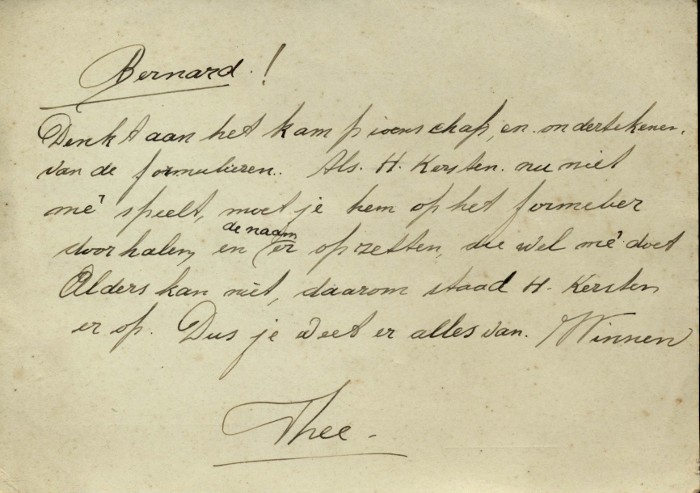 Bernard.!
Denkt aan het kampioenschap, en ondertekenen.
van de formulieren. Als. H. Kersten. nu niet
meê speelt, moet je hem op het formulier
doorhalen, en de naam er opzetten, die wel meê doet
Alders kan niet, daarom staad H. Kersten
er op. Dus je weet er alles van. Winnen
Thee.-